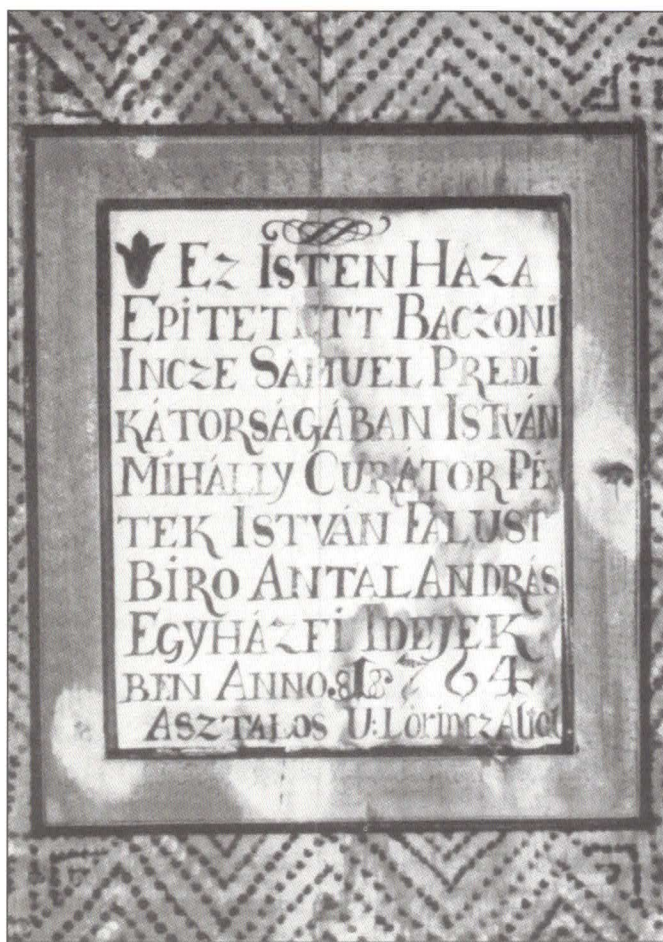 EZ ISTEN HÁZA
EPITETETT BACZONI
INCZE SÁMUEL PREDI
KÁTORSÁGÁBAN ISTVÁN
MIHÁLLY CURÁTOR PÉ
TEK ISTVÁN FALUSI
BIRO ANTAL ANDRÁS
EGYHÁZFI IDEJEK
BEN ANNO. 1764
ASZTALOS U: Lőrincz